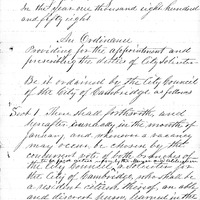 In the year one thousand eight hundred
and fifty eight
An Ordinance
Providing for the appointment and
prescribing the duties of City Solicitor
Be it ordained by the City Council
of the City of Cambridge, as follows
Sect. 1 There shall forthwith, and
hereafter annually in the month of
January, and whenever a vacancy
may occur, be chosen by the
concurrent vote of both branches of
the City Council, a Solicitor for
the City of Cambridge, who shall be
a resident citizen thereof, an able
and discreet person, learned in the